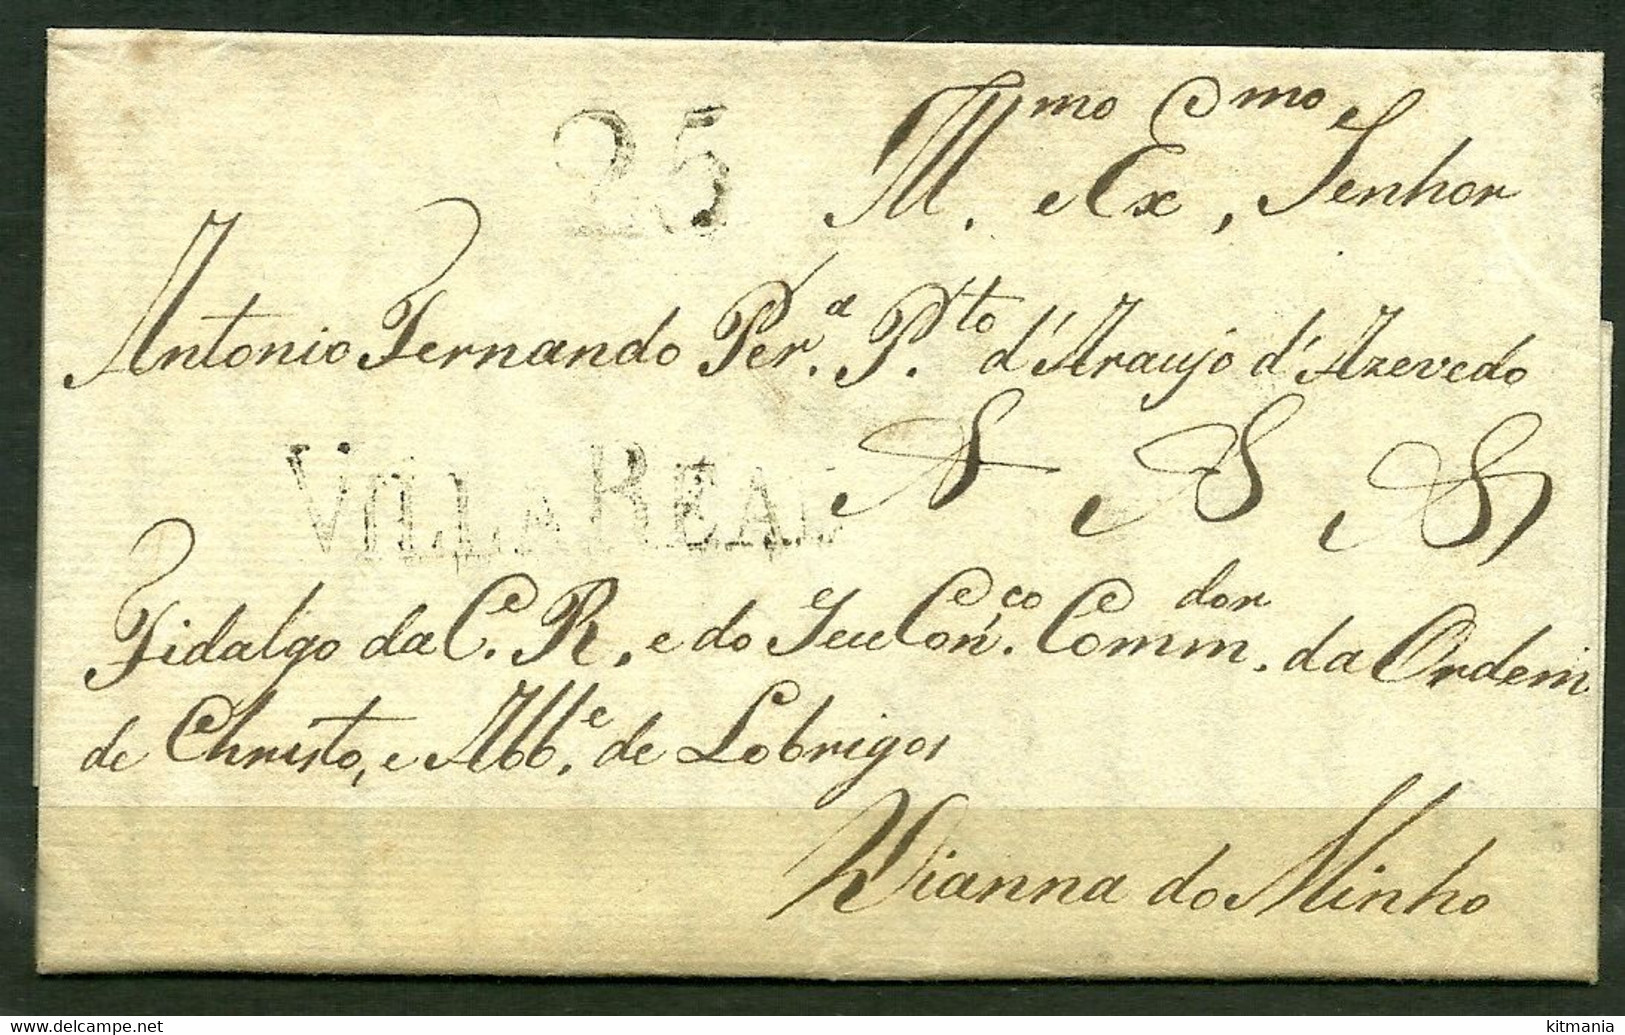 25
Ill.mo Ex.mo Senhor
Antonio Fernando Per.a P.to d'Araujo d'Azevedo
S S S
VILLA REAL
Fidalgo da C. R. e do Seu Con.co Comm.dor da Ordem
de Christo, e Abb.e de Lobrigos
Vianna do Minho
www.delcampe.net
kitmania